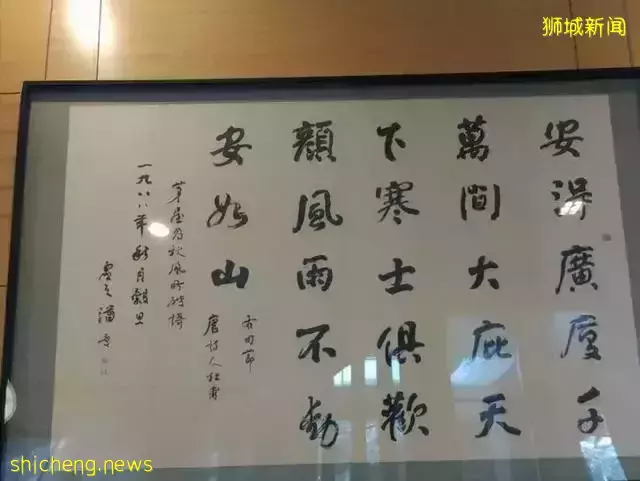 狮城新闻
安得廣廈千
萬間大庇天
下寒士俱歡
顏風雨不動
安如山
唐詩人杜甫
茅屋為秋風所破謌
一九八八年秋月穀旦
虛之潘受
shicheng.news